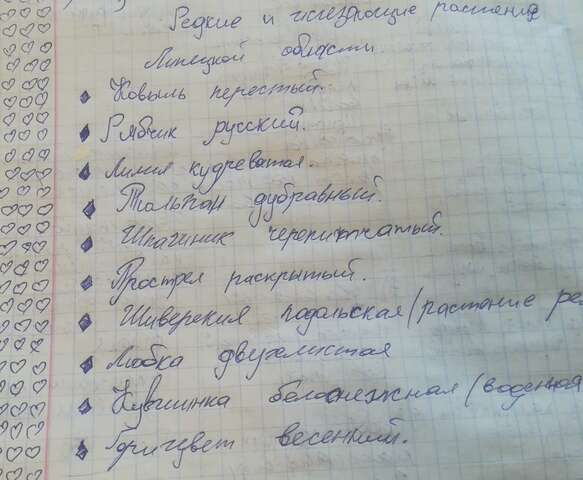 Редкие и исчезающие растения
Липецкой области.
Ковыль перестый.
Рябчик русский.
Лилия кудреватая.
Тюльпан дубравный.
Шпажник черепитчатый.
Прострел раскрытый.
Шиверекия подольская (растение ре
Любка двухлистая
Кувшинка белоснежная (водяная
Горицвет весенний.